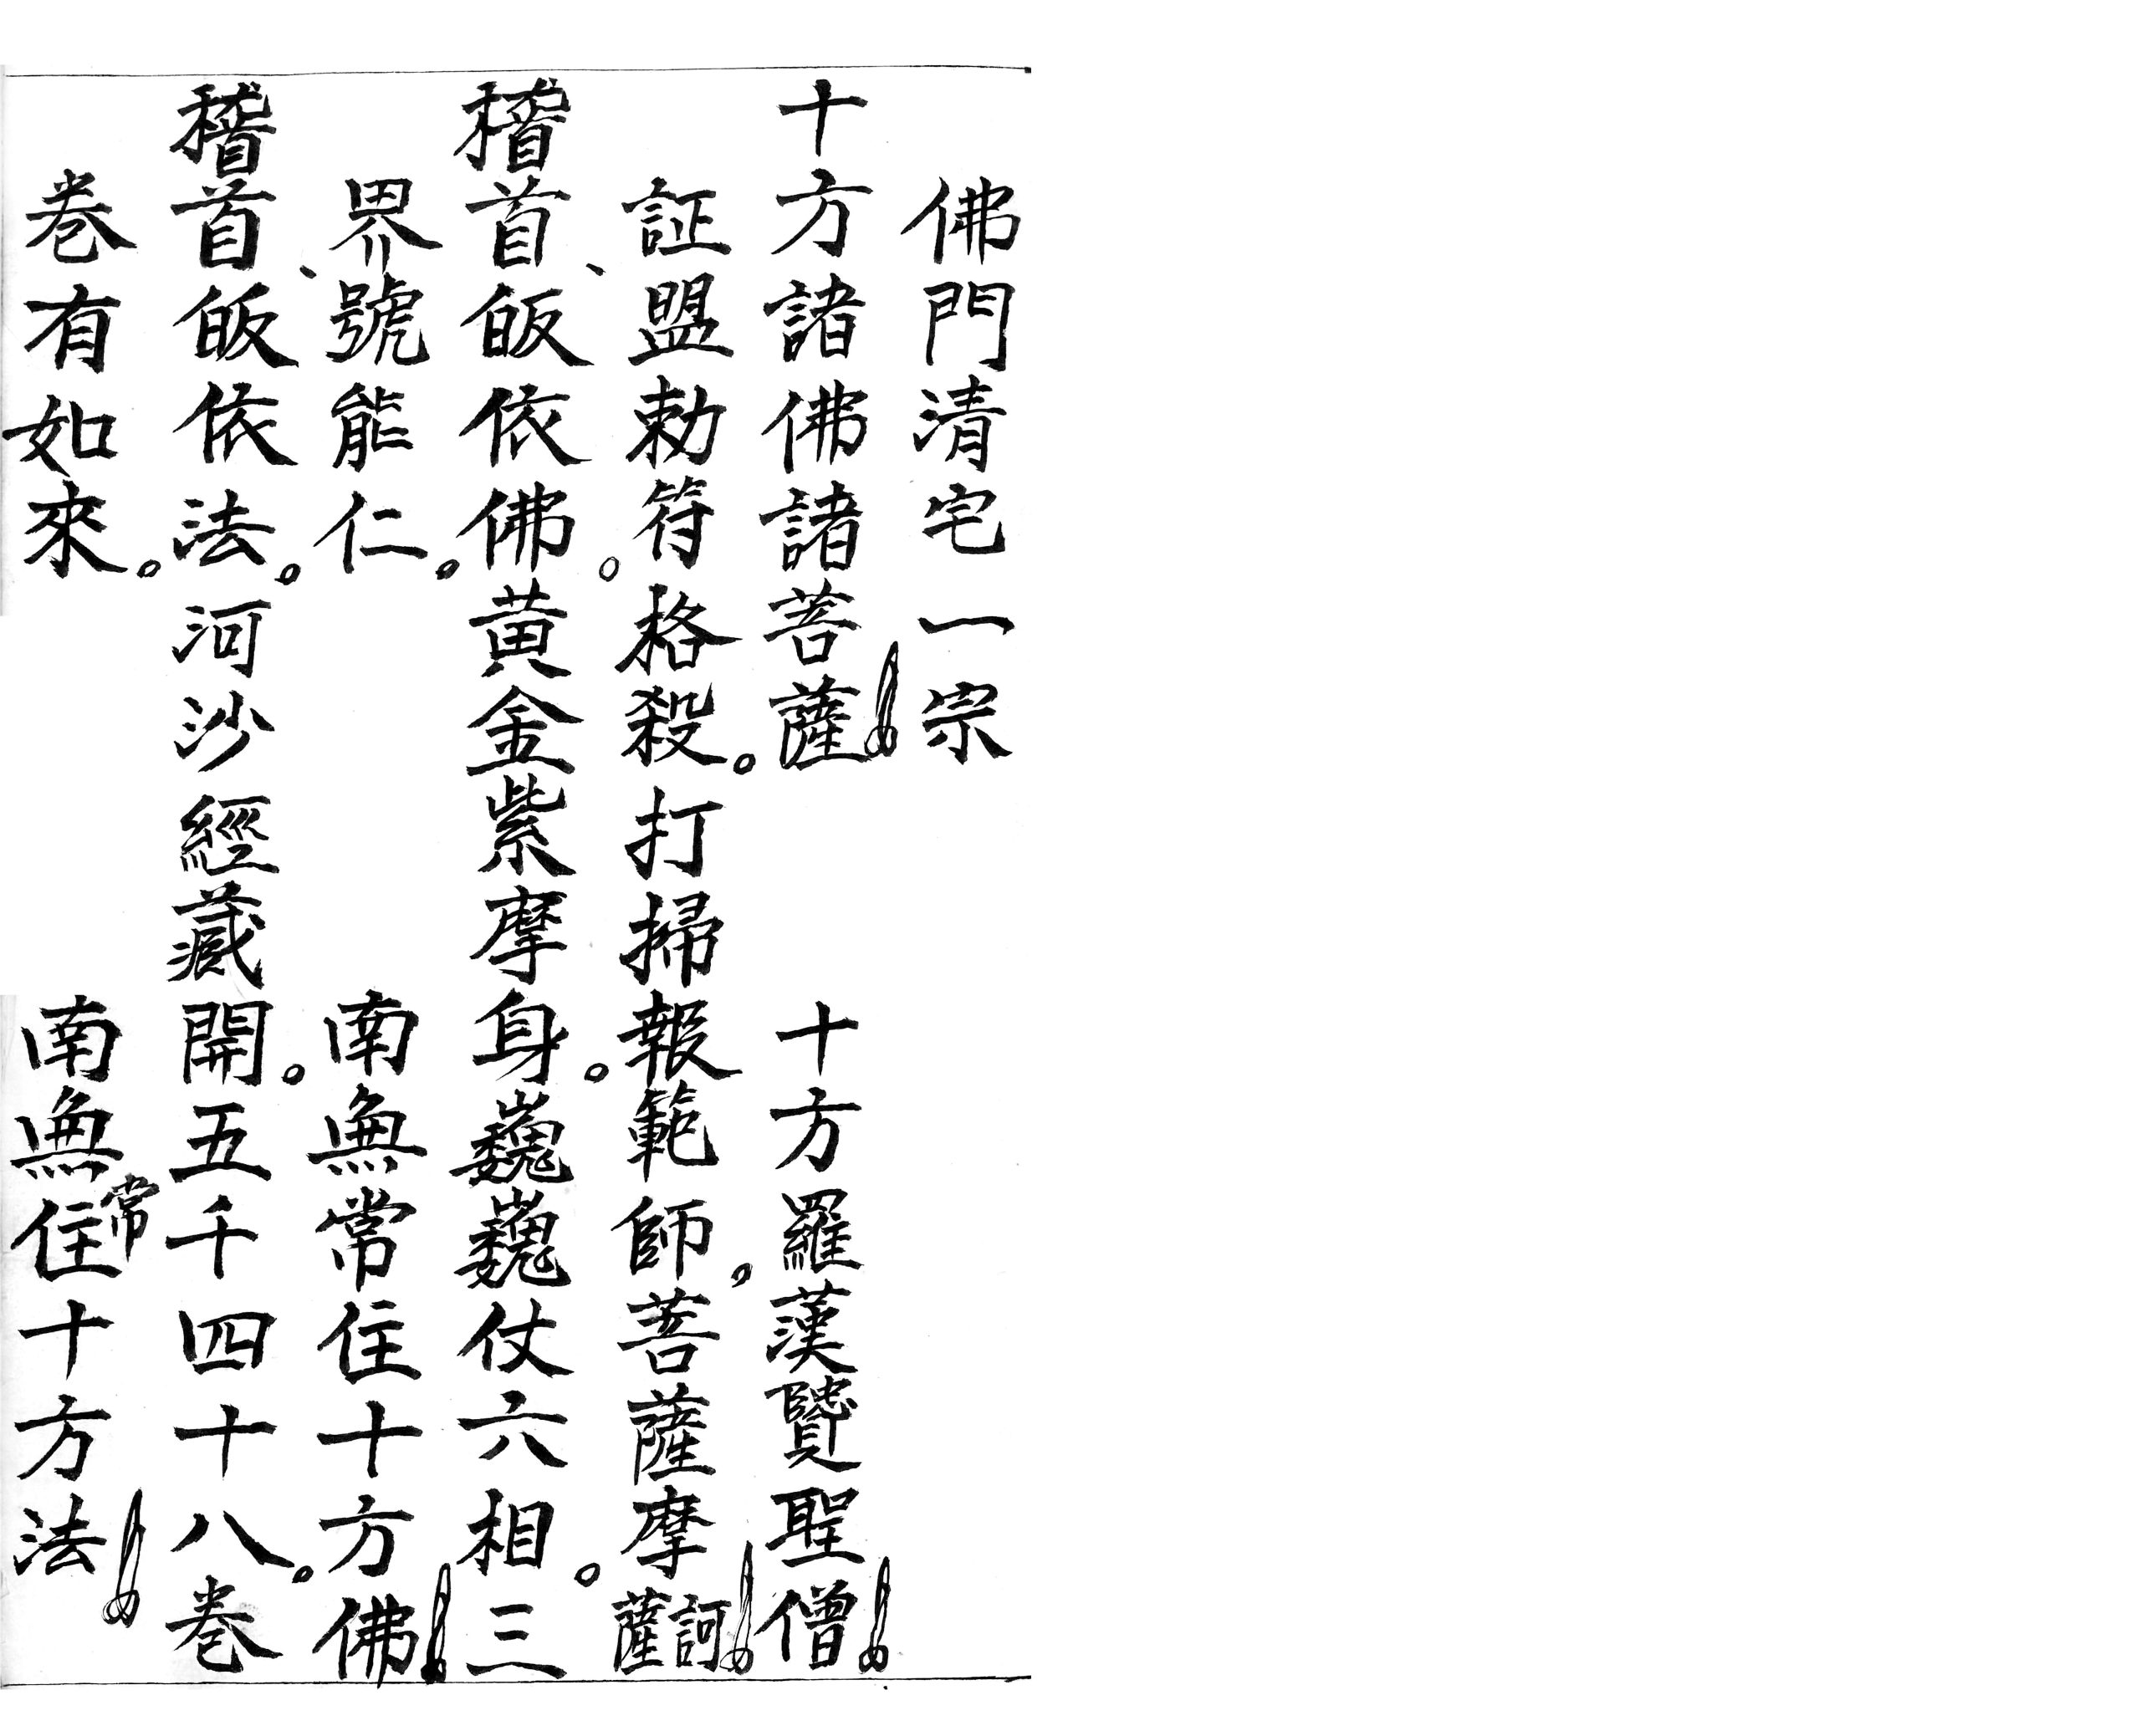 佛門清宅一宗
十方諸佛諸菩薩 十方羅漢賢聖僧
証盟勅符格殺。打掃報範師。菩薩摩訶薩
稽首皈依佛。黄金紫摩身。巍巍仗六相。三
界、號能仁。 南無常住十方佛
稽首皈依法。河沙經藏開。五千四十八。卷
卷有如來。 南無常住十方法